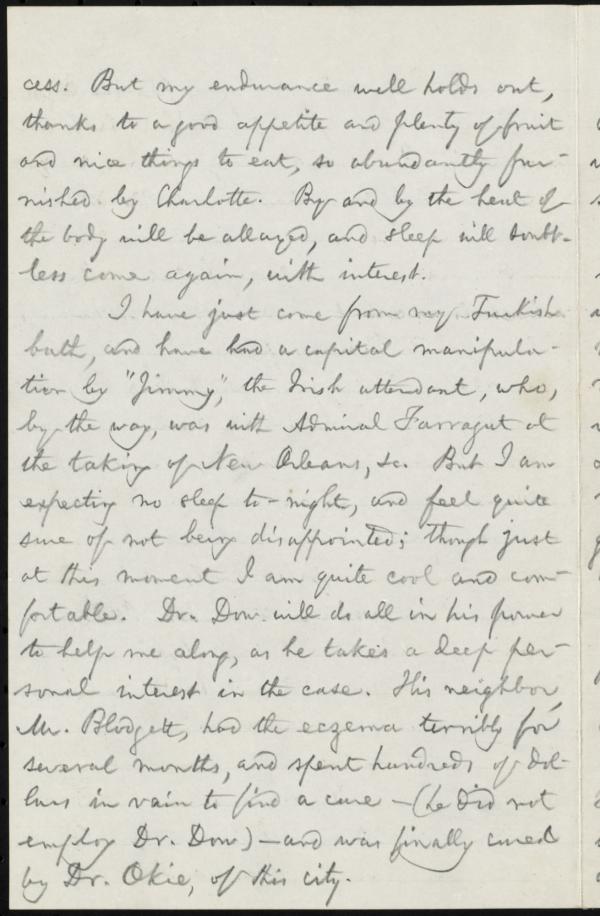 cess. But my endurance well holds out,
thanks to a good appetite and plenty of fruit
and nice things to eat, so abundantly fur-
nished by Charlotte. By and by the heat of
the body will be allayed, and sleep will doubt-
less come again, with interest.
I have just come from my Turkish
bath, and have had a capital manipula-
tion by "Jimmy," the Irish attendant, who,
by the way, was with Admiral Farragut at
the taking of New Orleans, &c. But I am
expecting no sleep to-night, and feel quite
sure of not being disappointed; though just
at this moment I am quite cool and com-
fortable. Dr. Dow will do all in his power
to help me along, as he takes a deep per-
sonal interest in the case. His neighbor,
Mr. Blodgett, had the eczema terribly for
several months, and spent hundreds of dol-
lars in vain to find a cure—(he did not
employ Dr. Dow)—and was finally cured
by Dr. Okie, of this city.